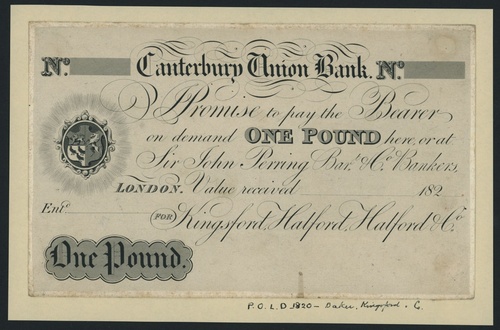 No. Canterbury Union Bank. No.
I Promise to pay the Bearer
on demand ONE POUND here, or at
Sir John Perring Bart. & Co. Bankers,
LONDON. Value received 182
Entd. (FOR) Kingsford, Halford, Halford & Co.
One Pound.
P.O.L.D 1820- Baker, Kingsford. C.